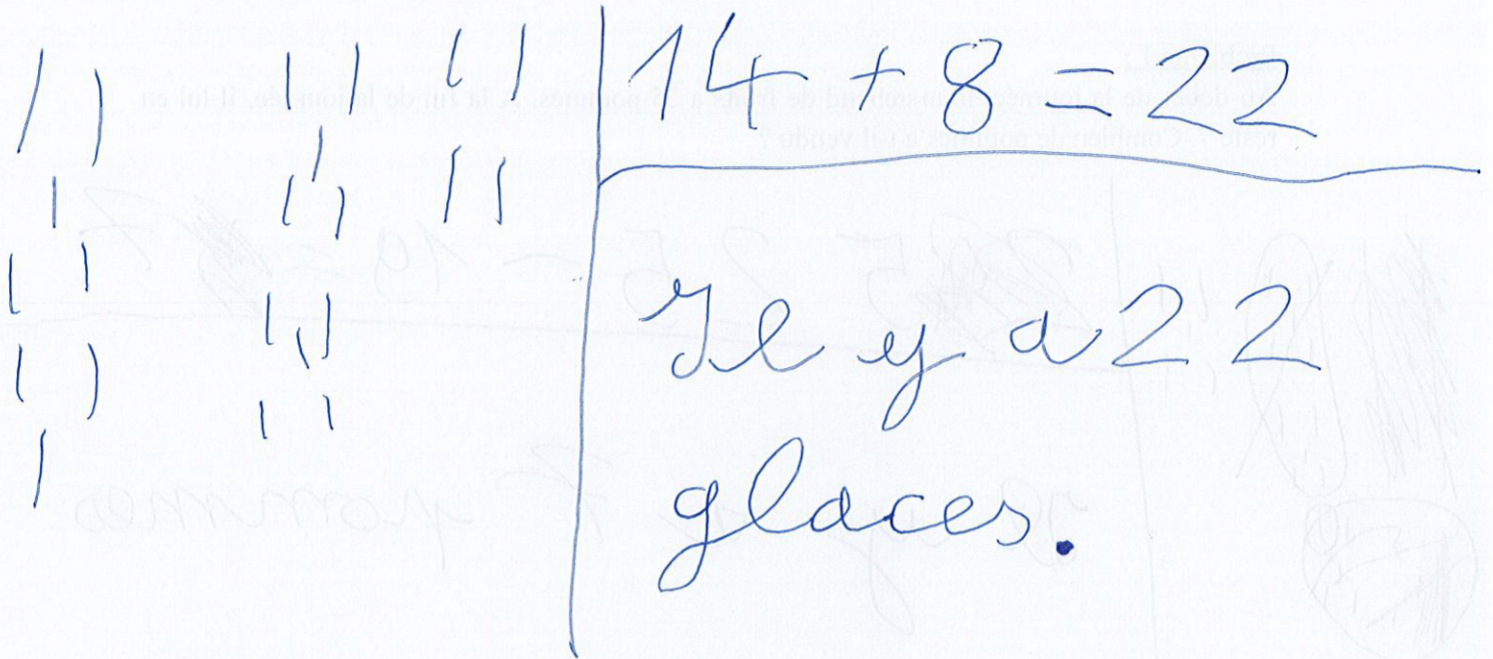 14 + 8 = 22
Il y a 22
glaces.